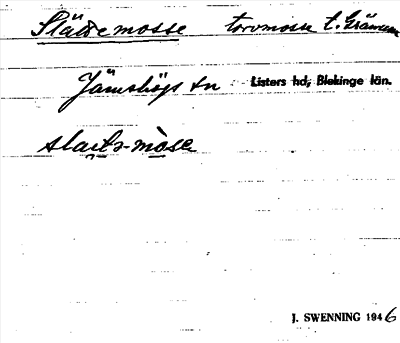 Slättemosse torvmosse t. Grämum
Jämshögs sn Listers hd, Blekinge län.
slaits-måse
J. SWENNING 1946